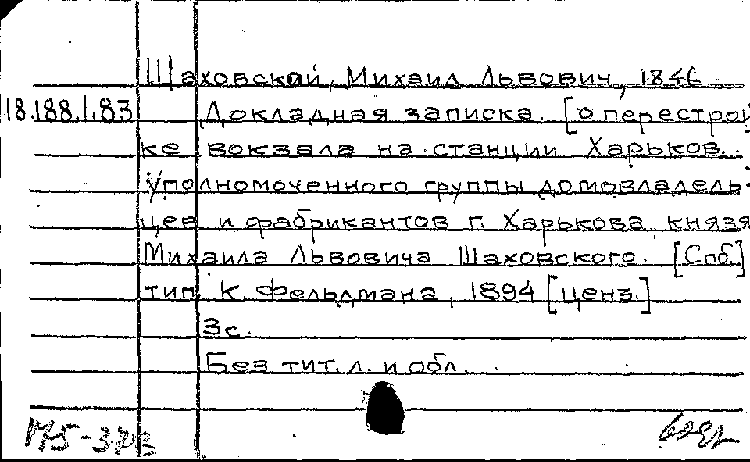 Шаховской, Михаил Львович, 1846
18.188.1.83 Докладная записка. [о перестрой
ке вокзала на станции Харьков.
уполномоченного группы домовладель-
цев и фабрикантов г. Харькова князя
Михаила Львовича Шаховского. [Спб.]
тип. К. Фельдмана, 1894 [ценз.]
3с.
Без тит. л. и обл.